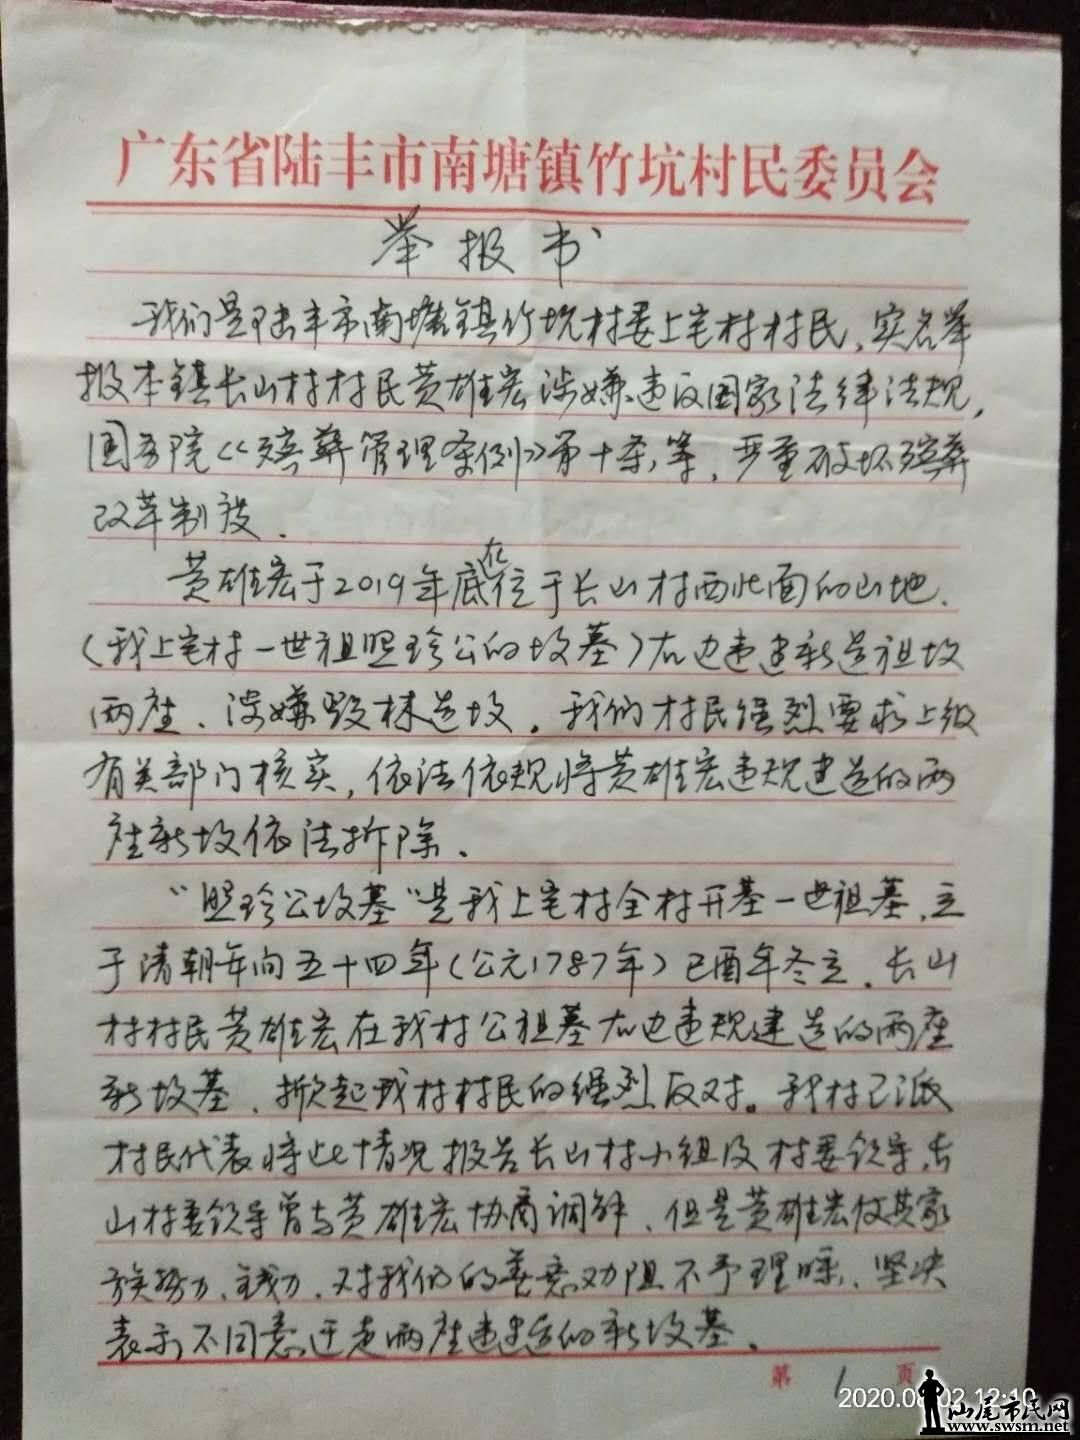 广东省陆丰市南塘镇竹坑村民委员会
举报书
我们是陆丰市南塘镇竹坑村委上宅村村民,实名举
报本镇长山村村民黄雄宏涉嫌违反国家法律法规,
国务院《殡葬管理条例》第十条,等,严重破坏殡葬
改革制度.
黄雄宏于2019年底在位于长山村西北面的山地.
(我上宅村一世祖照珍公的坟墓)右边违建新造祖坟
两座、涉嫌毁林造坟。我们村民强烈要求上级
有关部门核实,依法依规将黄雄宏违规建造的两
座新坟依法拆除.
“照珍公坟墓”是我上宅村全村开基一世祖墓、立
于清朝年间五十四年(公元1787年)己酉年冬立。长山
村村民黄雄宏在我村公祖墓右边违规建造的两座
新坟墓、掀起我村村民的强烈反对。我村已派
村民代表将此情况报告长山村小组及村委领导,长
山村委领导曾与黄雄宏协商调解、但是黄雄宏仗其家
族势力、钱力、对我们的善意劝阻不予理睬、坚决
表示不同意迁走两座违建造的新坟墓。
第 1 页
2020.08.02 12:10
汕尾市民网
www.swsm.net